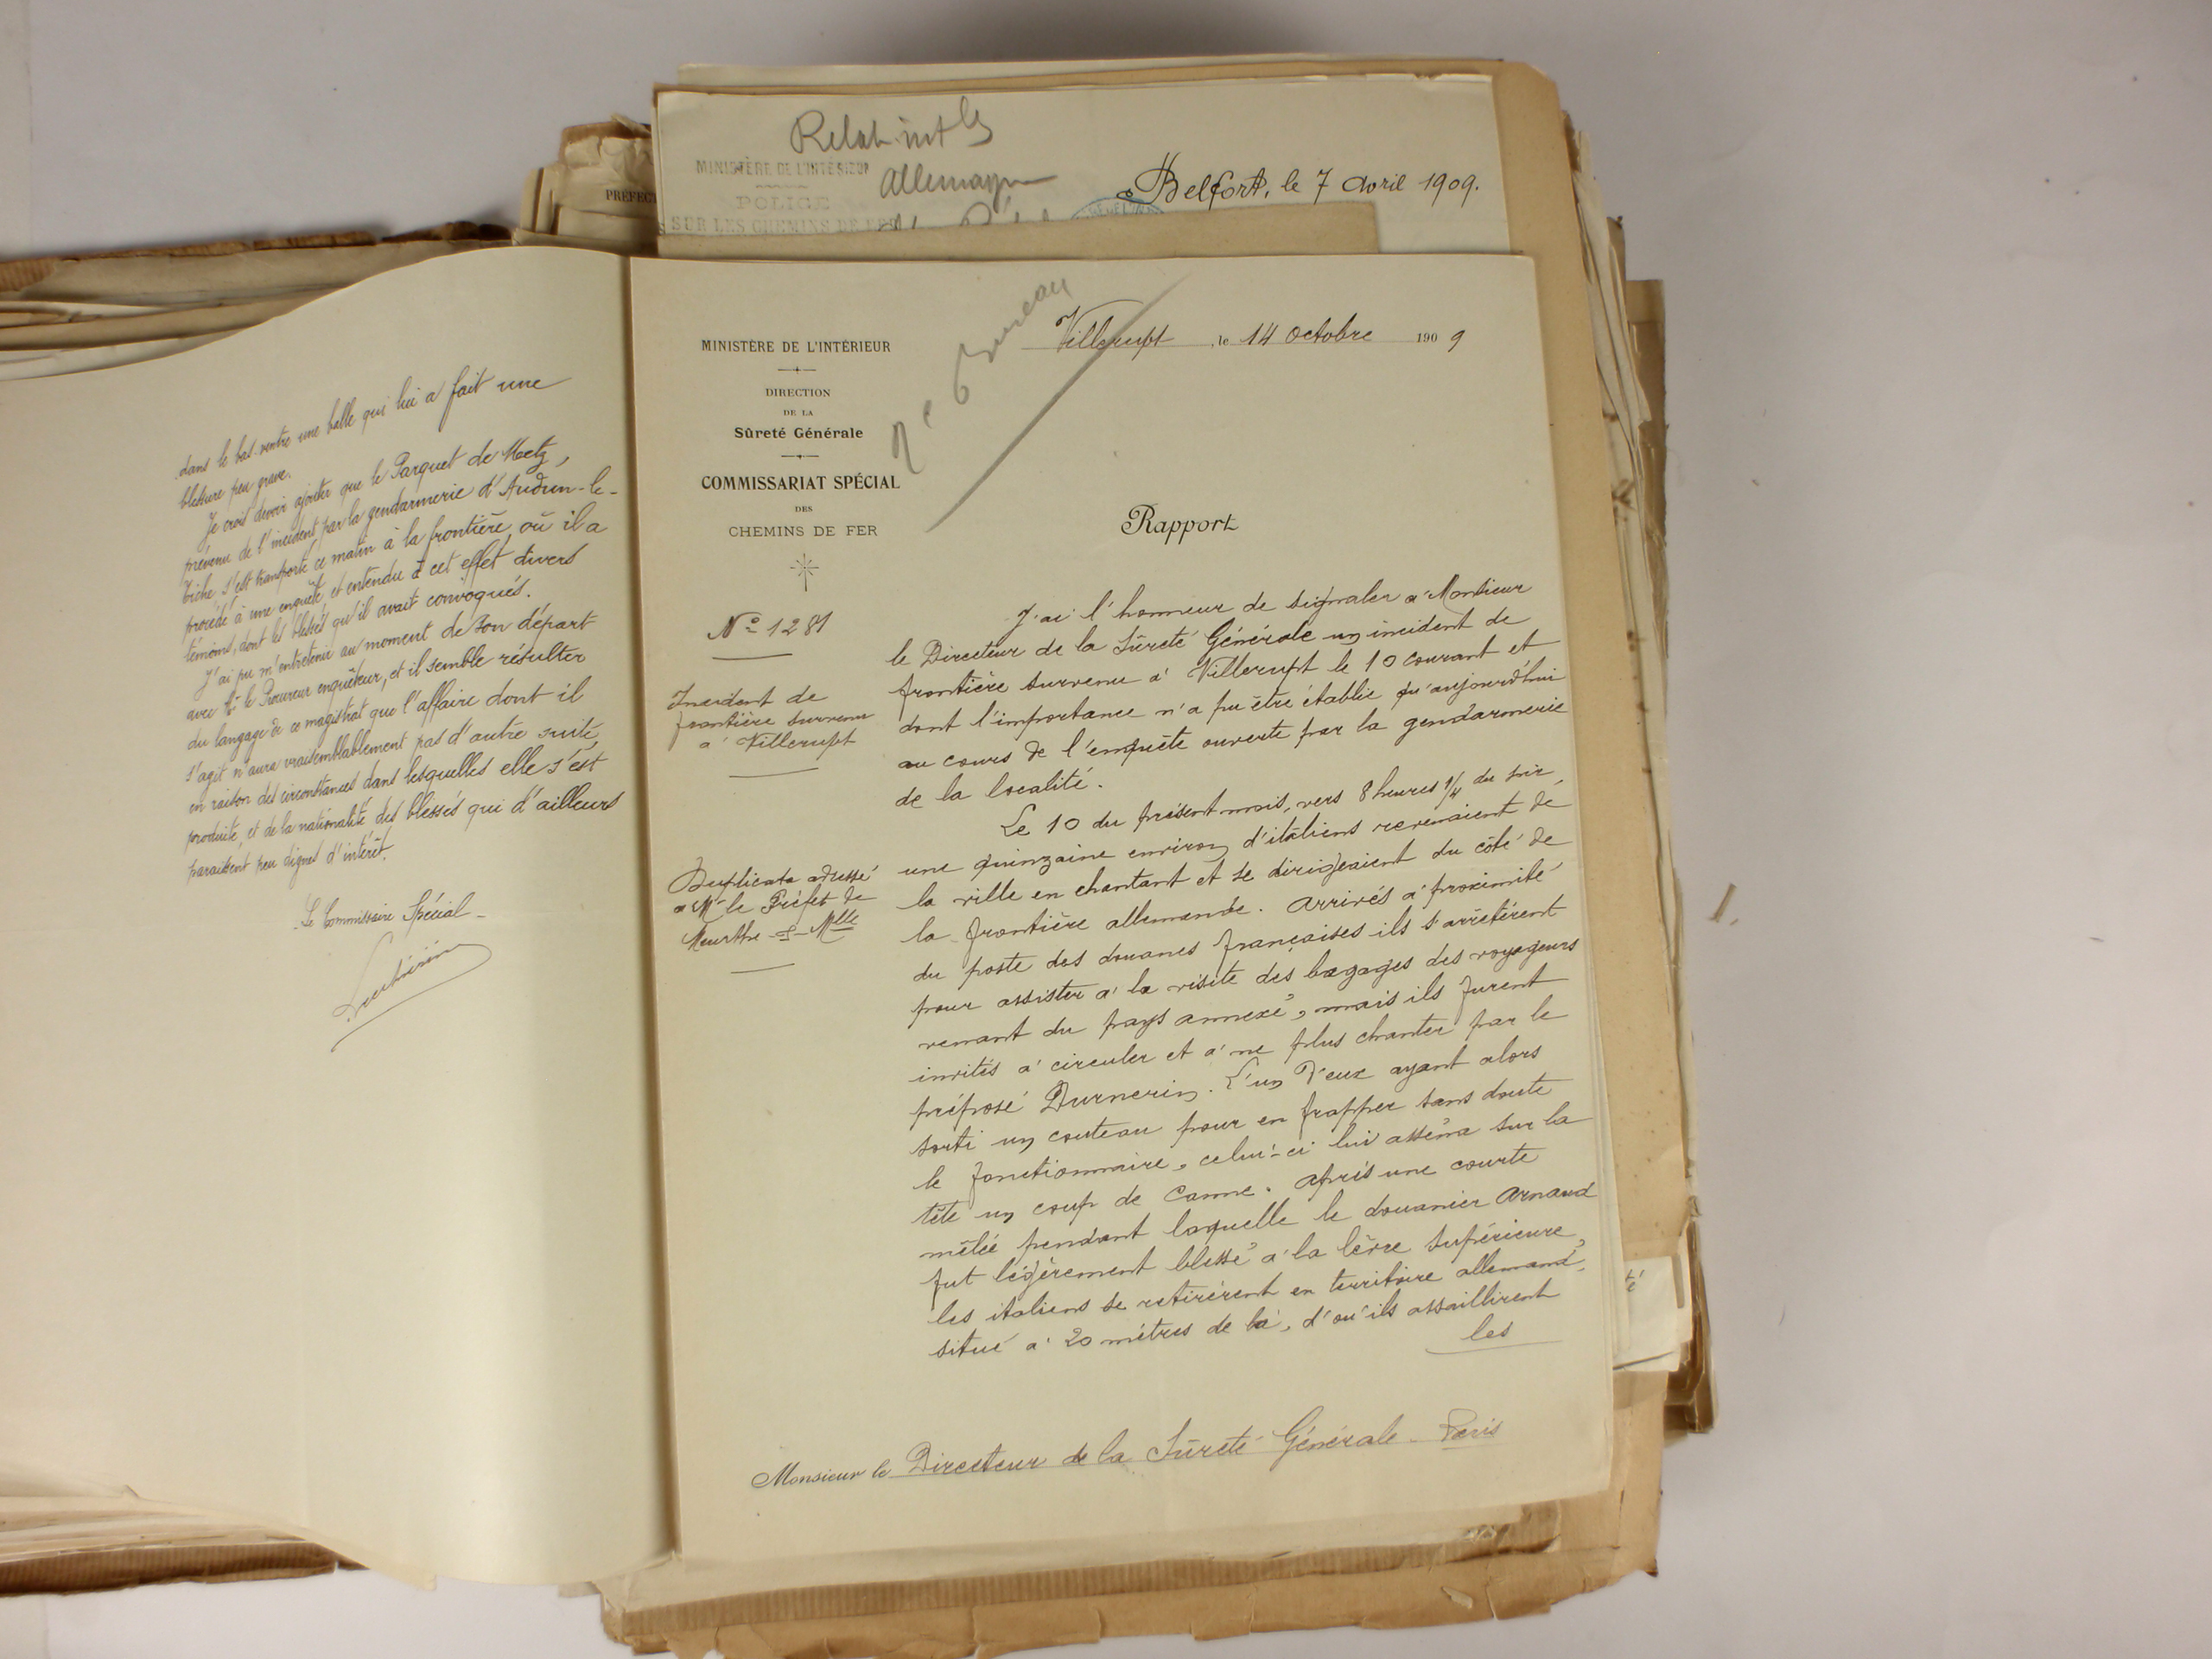 Relat. int les
MINISTÈRE DE L'INTÉRIEUR
Allemagne
POLICE
SUR LES CHEMINS DE FER
Belfort, le 7 Avril 1909.
PRÉFECT
dans le bas-ventre une balle qui lui a fait une
blessure peu grave.
Je crois devoir ajouter que le Parquet de Metz,
prévenu de l'incident par la gendarmerie d'Audun-le-
Tiche s'est transporté ce matin à la frontière, où il a
procédé à une enquête et entendu à cet effet divers
témoins, dont les blessés qu'il avait convoqués.
J'ai pu m'entretenir au moment de son départ
avec Mr le Procureur enquêteur, et il semble résulter
du langage de ce magistrat que l'affaire dont il
s'agit n'aura vraisemblablement pas d'autre suite,
en raison des circonstances dans lesquelles elle s'est
produite, et de la nationalité des blessés qui d'ailleurs
paraissent peu dignes d'intérêt.
Le Commissaire Spécial
MINISTÈRE DE L'INTÉRIEUR
DIRECTION
DE LA
Sûreté Générale
COMMISSARIAT SPÉCIAL
DES
CHEMINS DE FER
No 1281
Incident de
frontière survenu
a' Villerupt
Duplicata adressé
a' Mr le Préfet de
Meurthe-&-Mlle
Bureau
Villerupt, le 14 Octobre 1909
Rapport
J'ai l'honneur de signaler a' Monsieur
le Directeur de la Sûreté Générale un incident de
frontière survenu a' Villerupt le 10 courant et
dont l'importance n'a pu être établie qu'aujourd'hui
au cours de l'enquête ouverte par la gendarmerie
de la localité.
Le 10 du présent mois, vers 8 heures 1/4 du soir,
une quinzaine environ d'italiens revenaient de
la ville en chantant et se dirigeaient du côté de
la frontière allemande. Arrivés a' proximité
du poste des douanes françaises ils s'arrêtèrent
pour assister a' la visite des bagages des voyageurs
venant du pays annexé, mais ils furent
invités a' circuler et a' ne plus chanter par le
préposé Durnerin. L'un d'eux ayant alors
sorti un couteau pour en frapper sans doute
le fonctionnaire, celui-ci lui asséna sur la
tête un coup de canne. Après une courte
mêlée pendant laquelle le douanier Arnaud
fut légèrement blessé a' la lèvre supérieure,
les italiens se retirèrent en territoire allemand,
situé a' 20 mètres de là, d'où ils assaillirent
les
Monsieur le Directeur de la Sûreté Générale - Paris
té